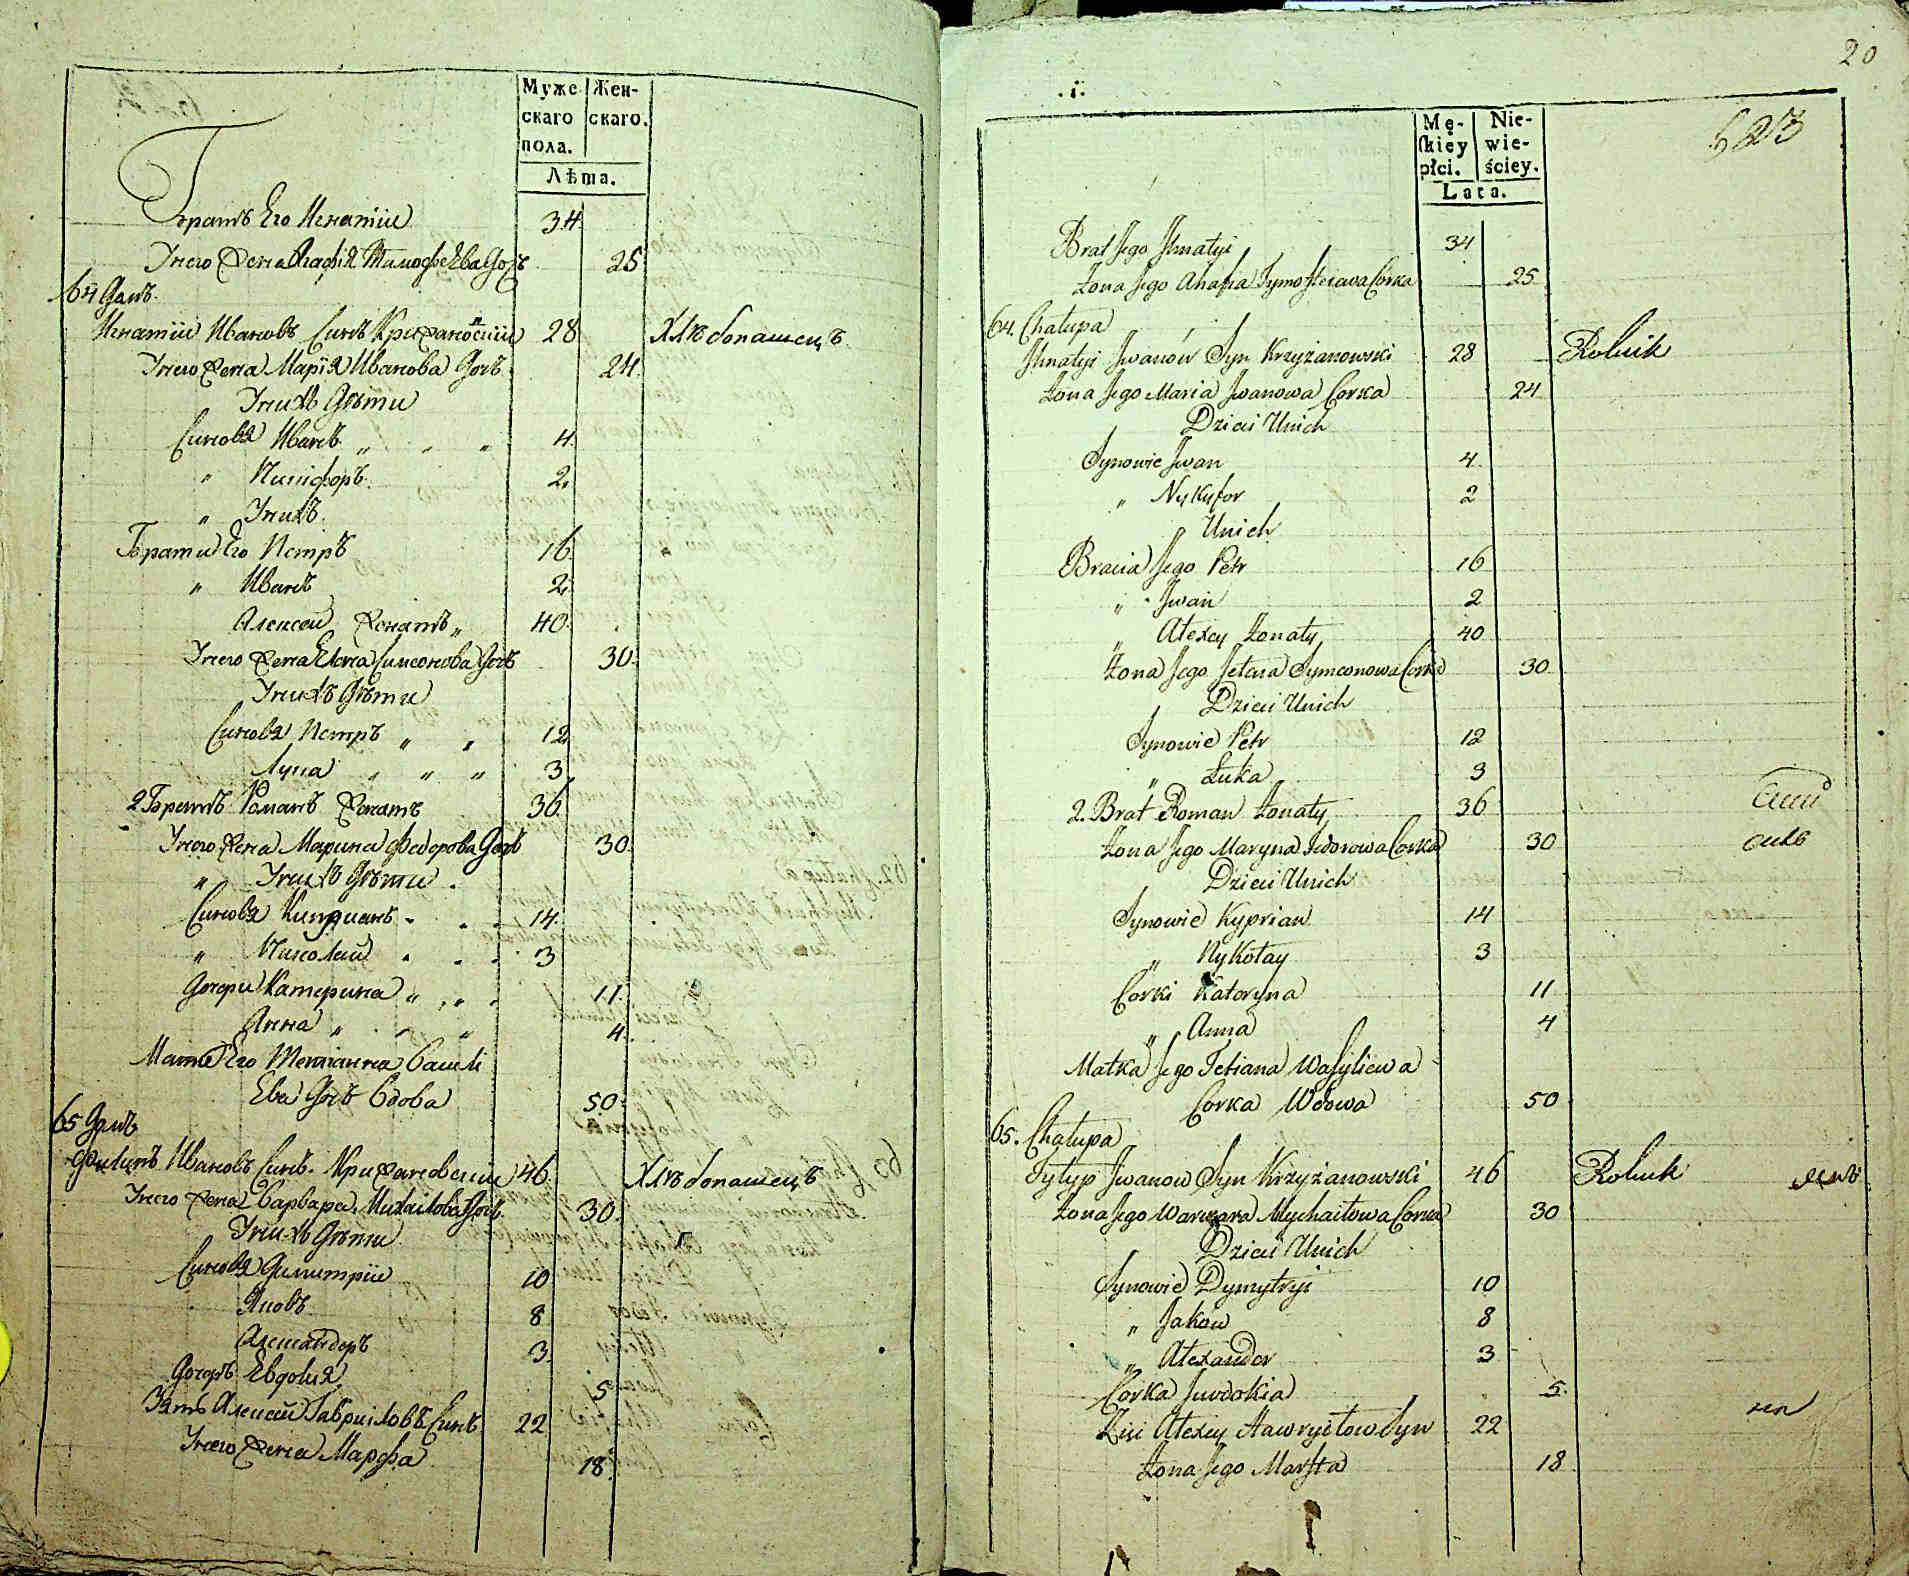 Муже-
скаго
пола.
Жен-
скаго.
Лѣта.
Братъ Его Игнатіи 34
У него Жена Агафія Тимофеева Дочъ 25
64 Домъ
Игнатіи Ивановъ Синъ Крижановскіи 28 Хлѣбопашецъ
У него Жена Марія Иванова Дочъ 24
У нихъ Дѣти
Синовя Иванъ „ „ „ 4
„ Никифоръ 2
„ У нихъ
Брати Его Петръ 16
„ Иванъ 2
Алексей Женатъ „ 40
У него Жена Елена Симеонова Дочъ 30
У нихъ Дѣти
Синовя Петръ „ „ 12
Лука „ „ „ 3
2 Братъ Романъ Женатъ 36
У него Жена Марина Федорова Дочъ 30
„ У нихъ Дѣти
Синовя Киприанъ 14
„ Николай 3
Дочери Катерина „ „ „ 11
Анна „ „ „ 4
Мати Его Тетианна Васили
Ева Дочъ Вдова 50
65 Домъ
Филипъ Ивановъ Синъ Крижановскіи 46 Хлѣбопашецъ
У него Жена Варвара Михайлова Дочъ 30
У нихъ Дѣти
Синовя Димитріи 10
Яковъ 8
Александеръ 3
Дочеръ Евдокия 5
Зять Алексей Гавриловъ Синъ 22
У него Жена Марфа 18
20
623
Mę-
skiey
płci.
Nie-
wie-
ściey.
Lata.
Brat Jego Ihnatyi 34
Żona Jego Ahafia Tymofieiawa Córka 25
64. Chałupa
Ihnatyi Iwanów Syn Krzyżanowski 28 Rolnik
Żona Jego Maria Iwanowa Corka 24
Dzieci Unich
Synowie Iwan 4
„ Nykyfor 2
„ Unich
Bracia Jego Petr 16
„ Iwan 2
„ Alexey Żonaty 40
Żona Jego Jelena Symeonowa Corka 30
Dzieci Unich
Synowie Petr 12
„ Łuka 3
2. Brat Roman Żonaty 36
Żona Jego Maryna Fedorowa Corka 30
Dzieci Unich
Synowie Kyprian 14
„ Nykołay 3
Corki Katoryna 11
„ Anna 4
Matka Jego Tetiana Wasyliewa
Corka Wdowa 50
65. Chałupa
Fylyp Iwanow Syn Krzyżanowski 46 Rolnik
Żona Jego Warwara Mychaiłowa Corka 30
Dzieci Unich
Synowie Dymytryi 10
„ Jakow 8
„ Alexander 3
Corka Iwdokia 5
Zięć Alexey Hawryłow Syn 22
Żona Jego Marfta 18